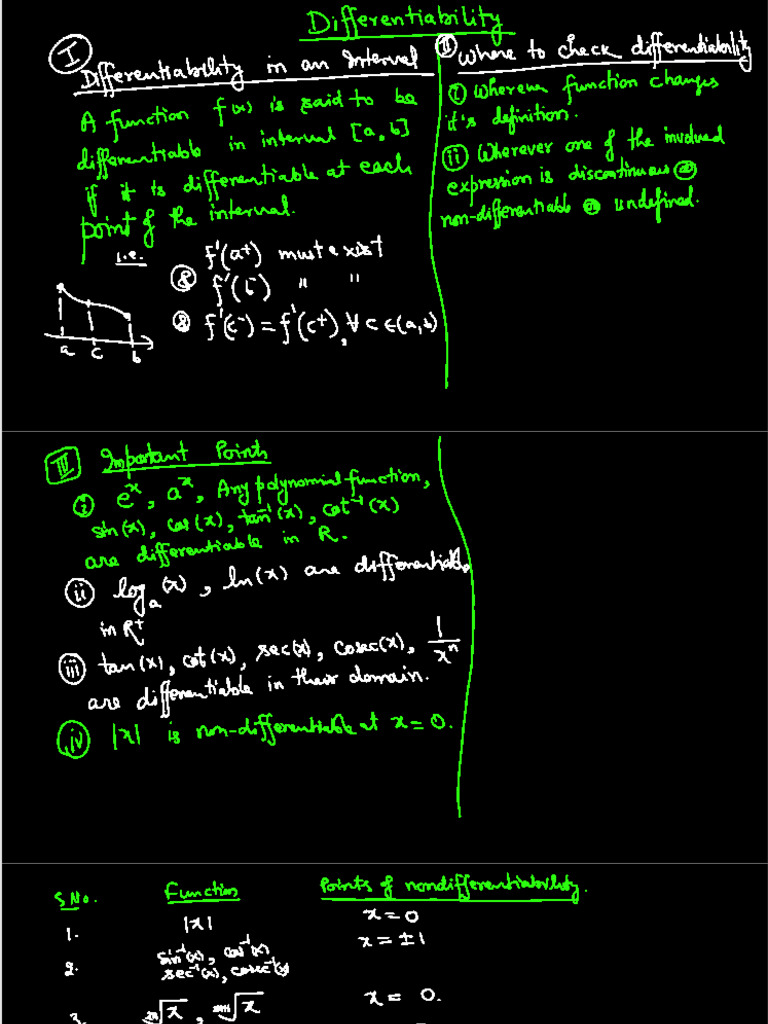 Differentiability
I Differentiability in an Interval
A function f(x) is said to be
differentiable in interval [a, b]
if it is differentiable at each
point of the interval.
i.e. f'(a⁺) must exist
& f'(b⁻) " "
& f'(c⁻) = f'(c⁺), ∀ c ∈ (a, b)
a c b
II Where to check differentiability
(i) Wherever function changes
it's definition.
(ii) Wherever one of the involved
expression is discontinuous or
non-differentiable or undefined.
III Important Points
(i) eˣ, aˣ, Any polynomial function,
sin(x), cos(x), tan⁻¹(x), cot⁻¹(x)
are differentiable in R.
(ii) logₐ(x), ln(x) are differentiable
in R⁺
(iii) tan(x), cot(x), sec(x), cosec(x), 1/xⁿ
are differentiable in their domain.
(iv) |x| is non-differentiable at x = 0.
S.No. Function Points of nondifferentiability.
1. |x| x = 0
2. sin⁻¹(x), cos⁻¹(x) x = ±1
sec⁻¹(x), cosec⁻¹(x)
3. √x, √x x = 0.